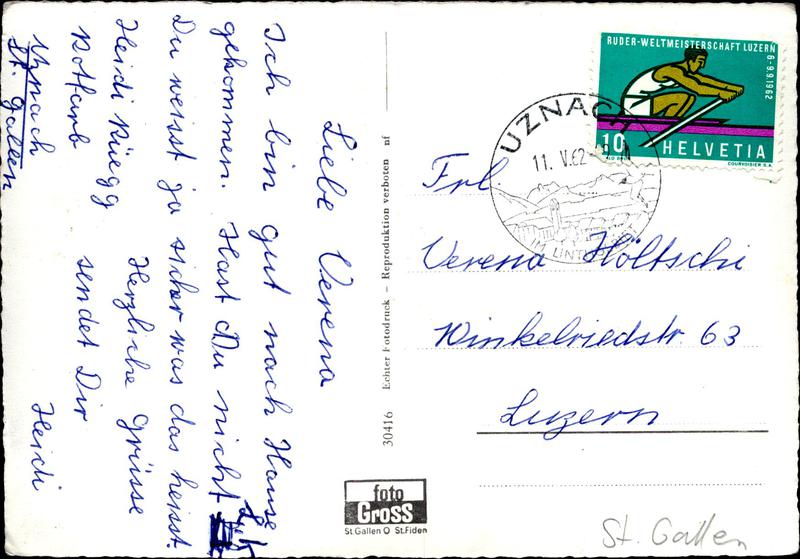 Liebe Verena
Ich bin gut nach Hause
gekommen. Hast Du nicht
Du weisst ja sicher was das heisst.
Heidi Rüegg Herzliche Grüsse
sendet Dir
Uznach Heidi
St. Gallen
Echter Fotodruck – Reproduktion verboten nf
30416
foto
GROSS
St. Gallen O St. Fiden
RUDER-WELTMEISTERSCHAFT LUZERN
6.-9.9.1962
10
HELVETIA
COURVOISIER S.A.
UZNACH
11. V.62
Frl.
Verena Höltschi
Winkelriedstr. 63
Luzern
St. Gallen